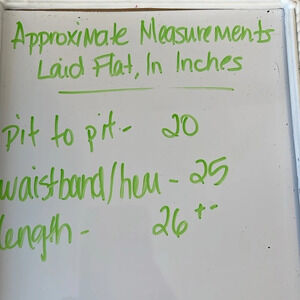 Approximate Measurements
Laid Flat, In Inches
pit to pit - 20
waistband/hem - 25
length - 26 +-